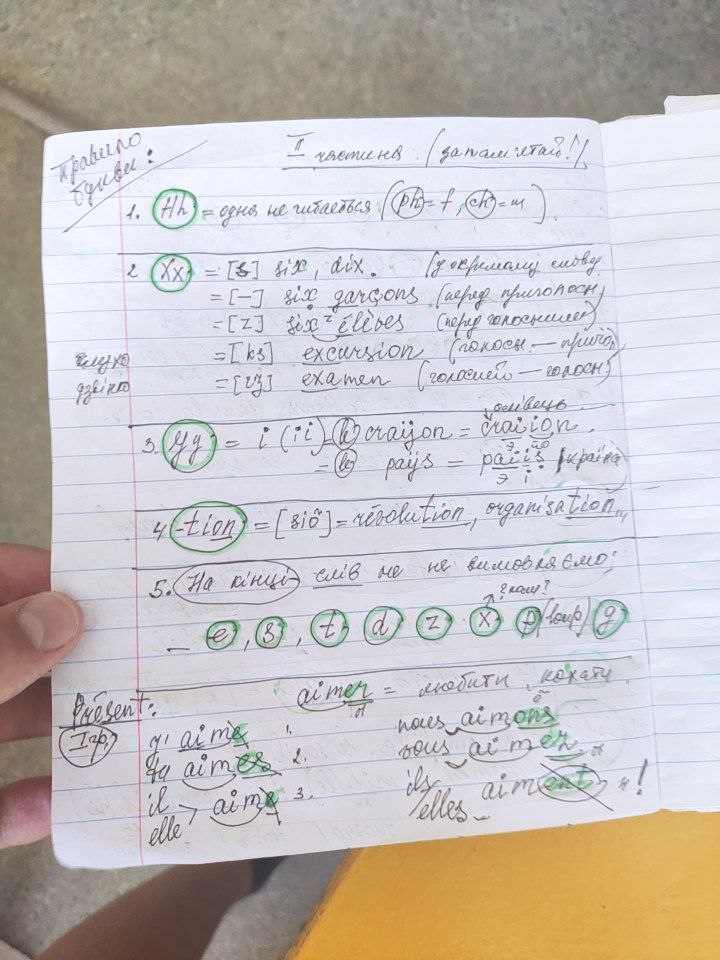 Правило
букви:
II частина. (запам'ятай!)
1. Hh = одна не читається (ph = f, ch = ш).
2 Xx = [s] six, dix. (у окремому слові)
= [–] six garçons (перед приголосн)
= [z] six élèves (перед голосними)
глухо = [ks] excursion (голосн. – пригол)
дзвінко = [gz] examen (голосний – голосн)
олівець
3. Yy = i (ii) = crayon = craiion.
= pays = paiis (країна)
4 -tion = [siõ] = révolution, organisation
5. На кінці слів не не вимовляємо:
– e, s, t, d, z x p (loup) g
aimer = любити, кохати
Présent:
I гр.
j' aime 1. nous aimons
tu aimes 2. vous aimez
il
elle > aime 3. ils/elles aiment !